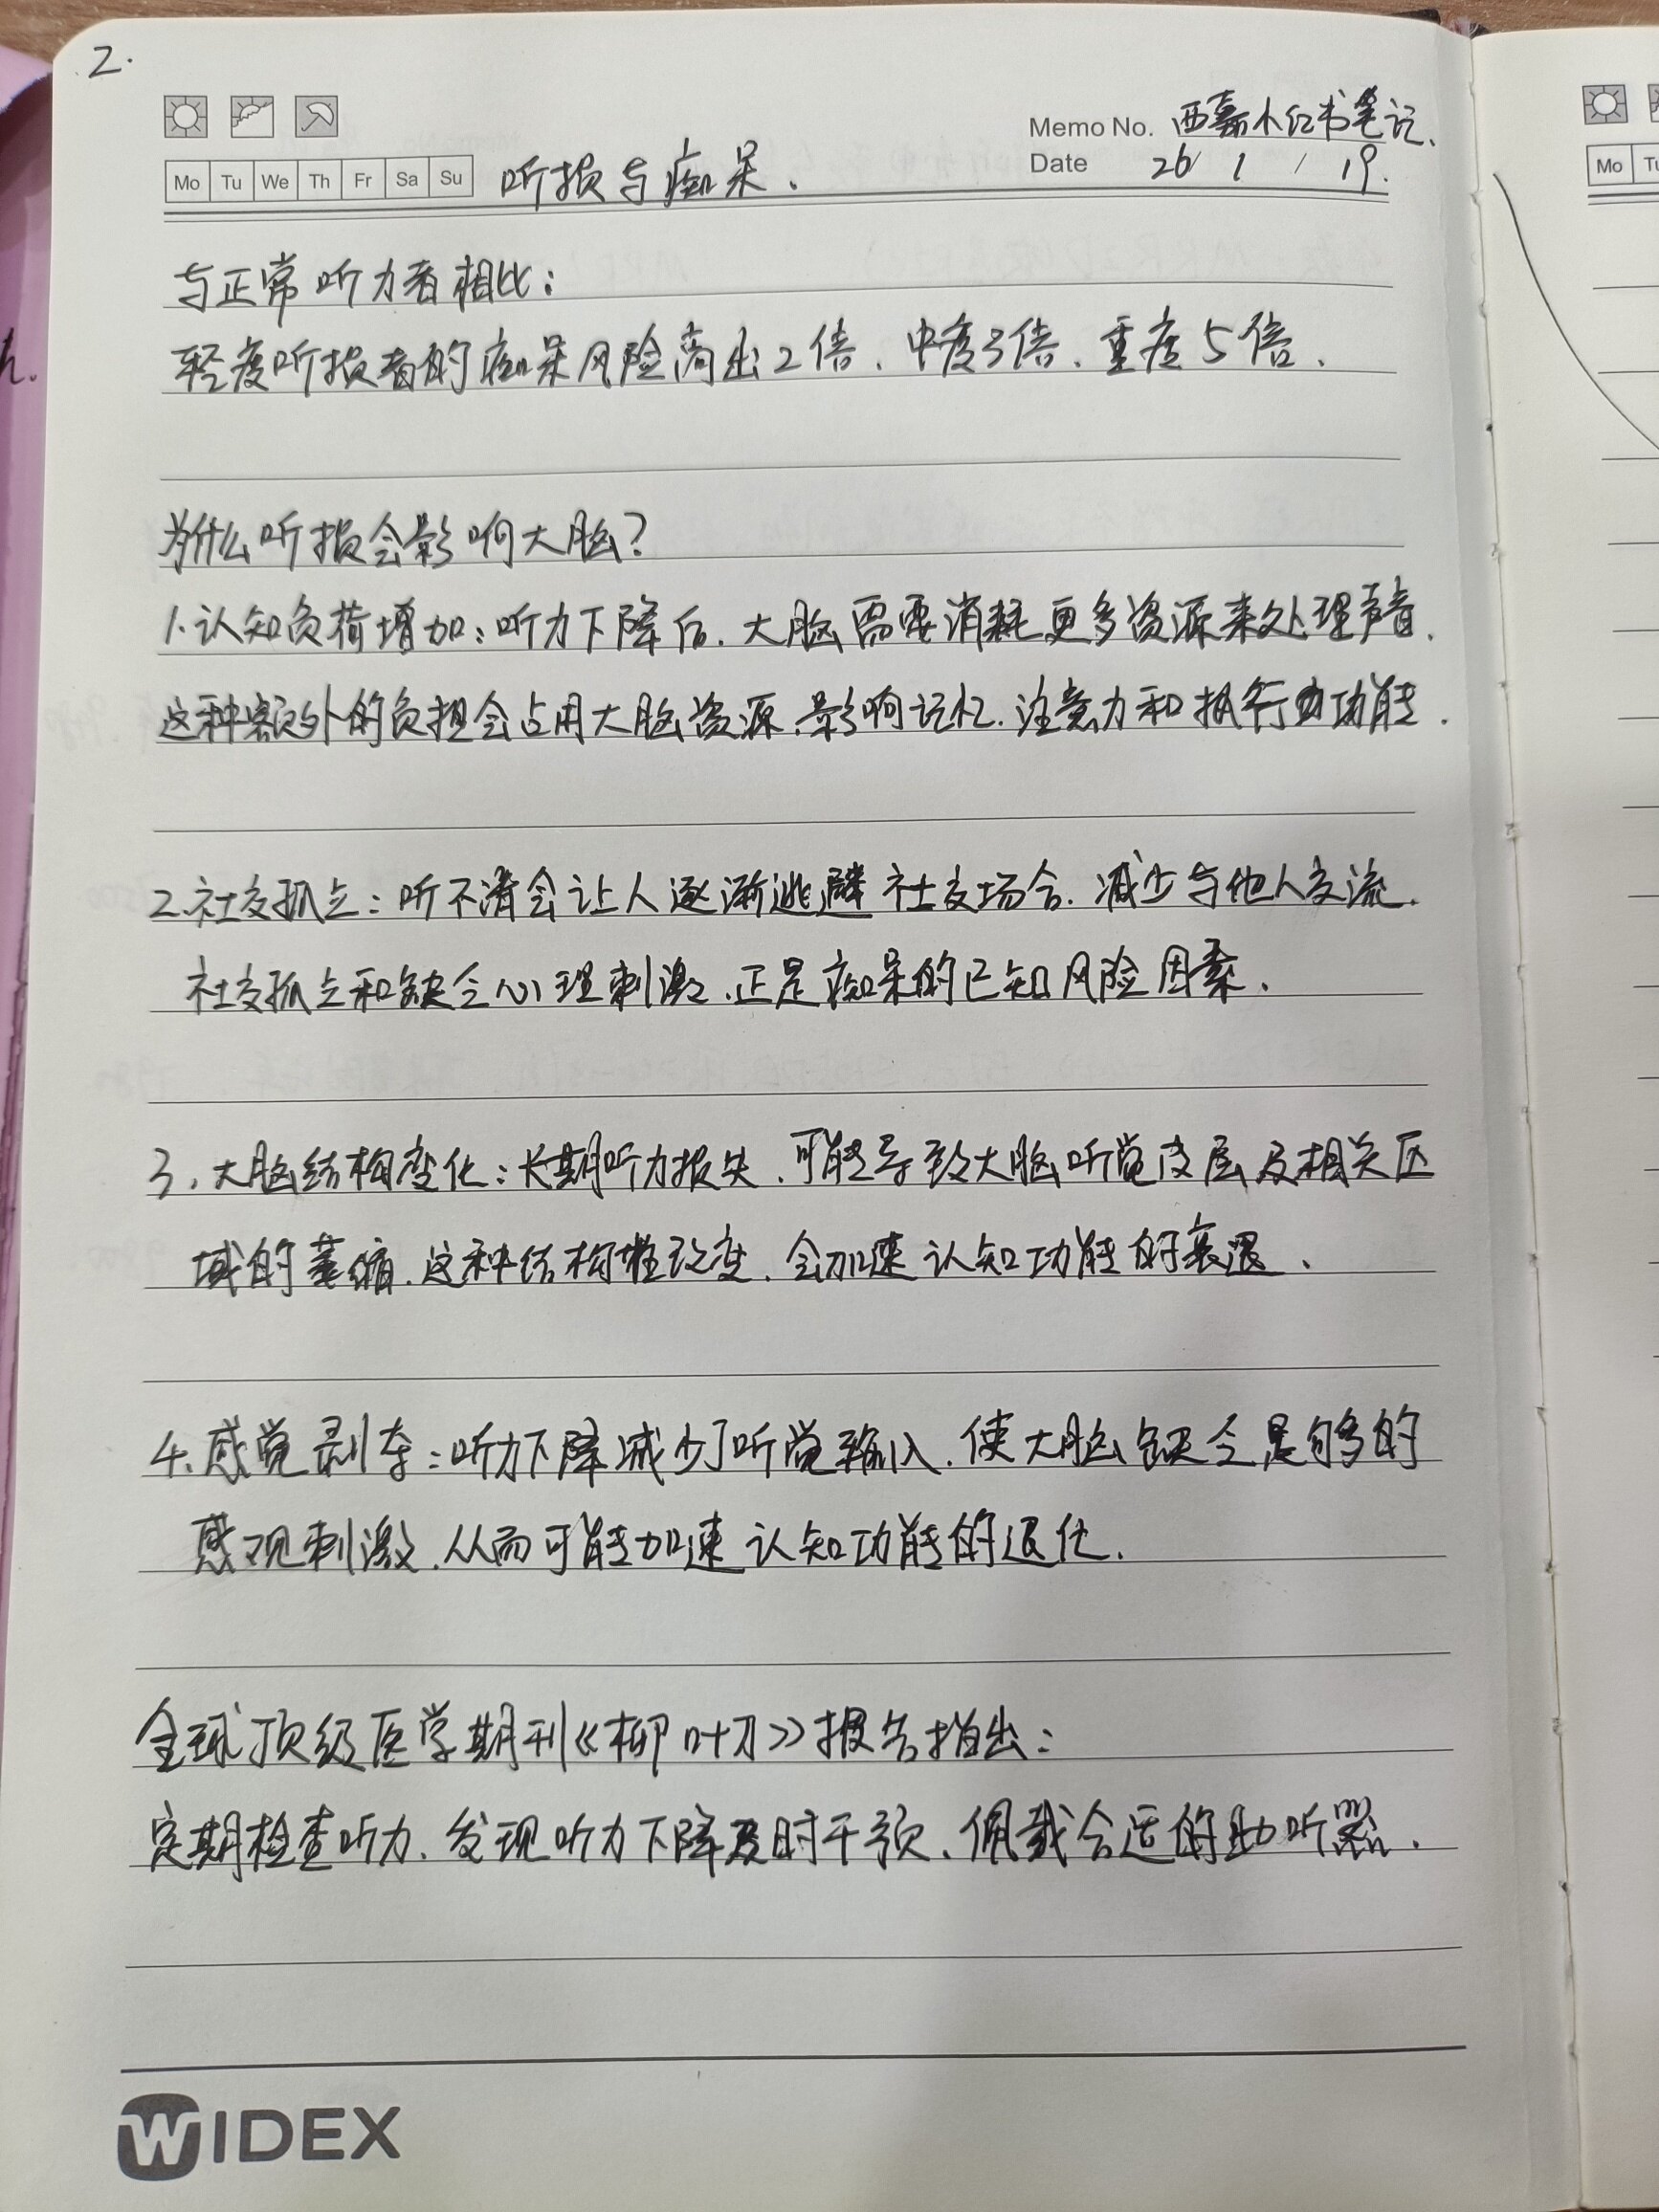 2.
Memo No. 西嘉小红书笔记.
Mo Tu We Th Fr Sa Su 听损与痴呆. Date 26 / 1 / 19.
与正常听力者相比:
轻度听损者的痴呆风险高出2倍、中度3倍、重度5倍.
为什么听损会影响大脑?
1.认知负荷增加:听力下降后.大脑需要消耗更多资源来处理声音.
这种额外的负担会占用大脑资源.影响记忆.注意力和执行功能.
2.社交孤立:听不清会让人逐渐逃避社交场合.减少与他人交流.
社交孤立和缺乏心理刺激.正是痴呆的已知风险因素.
3.大脑结构变化:长期听力损失.可能导致大脑听觉皮层及相关区
域的萎缩.这种结构性改变.会加速认知功能的衰退.
4.感觉剥夺:听力下降减少了听觉输入.使大脑缺乏足够的
感观刺激.从而可能加速认知功能的退化.
全球顶级医学期刊《柳叶刀》报告指出:
定期检查听力.发现听力下降及时干预、佩戴合适的助听器.
WIDEX
Mo